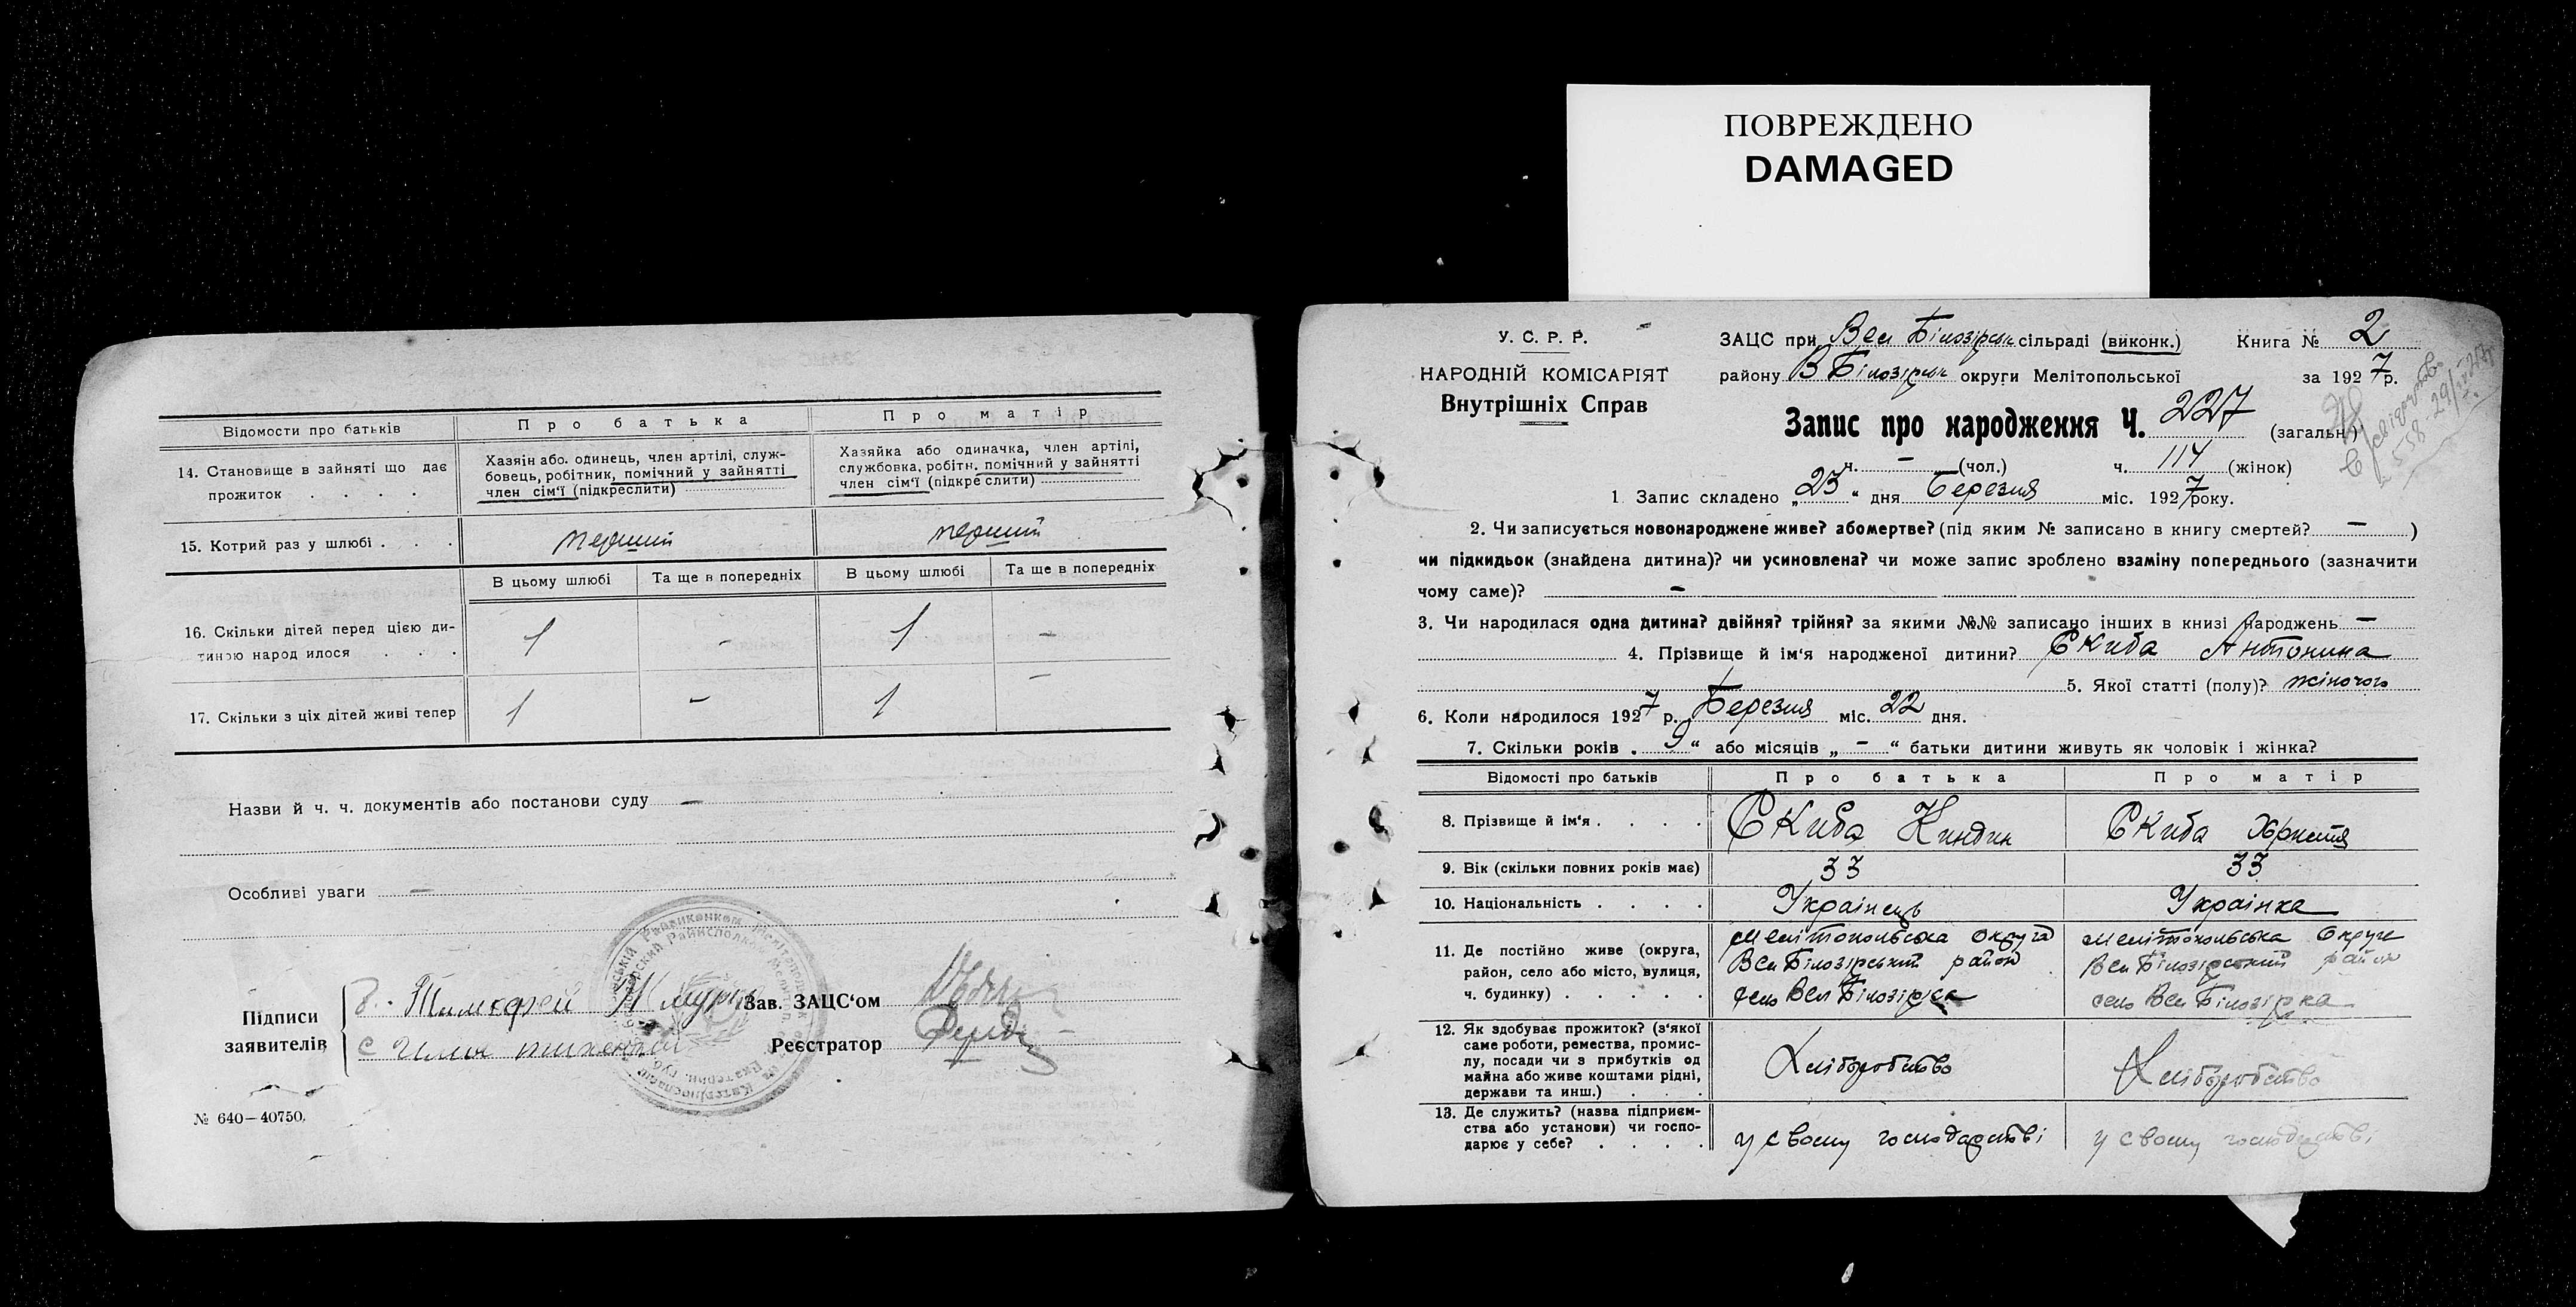 ПОВРЕЖДЕНО
DAMAGED
Відомости про батьків
Про батька
Про матір
14. Становище в зайняті що дає
прожиток . . . .
Хазяїн або. одинець, член артілі, служ-
бовець, робітник, помічний у зайнятті
член сім'ї (підкреслити)
Хазяйка або одиначка, член артілі,
службовка, робітн. помічний у зайнятті
член сім'ї (підкре слити)
15. Котрий раз у шлюбі . . .
перший
перший
В цьому шлюбі
Та ще в попередніх
В цьому шлюбі
Та ще в попередніх
16. Скільки дітей перед цією ди-
тиною народ илося . . .
1
-
1
-
17. Скільки з ціх дітей живі тепер
1
-
1
-
Назви й ч. ч. документів або постанови суду —
Особливі уваги —
Підписи
заявителів
Зав. ЗАЦС'ом
Реєстратор
№ 640—40750.
У. С. Р. Р.
НАРОДНІЙ КОМІСАРІЯТ
Внутрішніх Справ
ЗАЦС при Вел Білозірськ сільраді (виконк.)
Книга № 2
району В Білозірськ округи Мелітопольської
за 1927 р.
Запис про народження Ч. 227 (загальн.)
ч. — (чол.)
ч. 114 (жінок)
1 Запис складено „23" дня Березня міс. 1927 року.
2. Чи записується новонароджене живе? або мертве? (під яким № записано в книгу смертей? — )
чи підкидьок (знайдена дитина)? чи усиновлена? чи може запис зроблено взаміну попереднього (зазначити
чому саме)? —
3. Чи народилася одна дитина? двійня? трійня? за якими №№ записано інших в книзі народжень —
4. Прізвище й ім'я народженої дитини? Скиба Антонина
5. Якої статті (полу)? жіночого
6. Коли народилося 1927 р. Березня міс. 22 дня.
7. Скільки років „ 9 " або місяців „ - " батьки дитини живуть як чоловік і жінка?
Відомості про батьків
Про батька
Про матір
8. Прізвище й ім'я . . . .
Скиба Киндин
Скиба Христя
9. Вік (скільки повних років має)
33
33
10. Національність . . . .
Українець
Українка
11. Де постійно живе (округа,
район, село або місто, вулиця,
ч. будинку) . . . . .
Мелітопольська округа
Вел Білозірський район
село Вел Білозірка
Мелітопольська округа
Вел Білозірський район
село Вел Білозірка
12. Як здобуває прожиток? (з'якої
саме роботи, ремества, промис-
лу, посади чи з прибутків од
майна або живе коштами рідні,
держави та инш.) . . .
Хліборобство
Хліборобство
13. Де служить? (назва підприєм-
ства або установи) чи госпо-
дарює у себе? . . . .
у своему господарстві
у своему господарстві